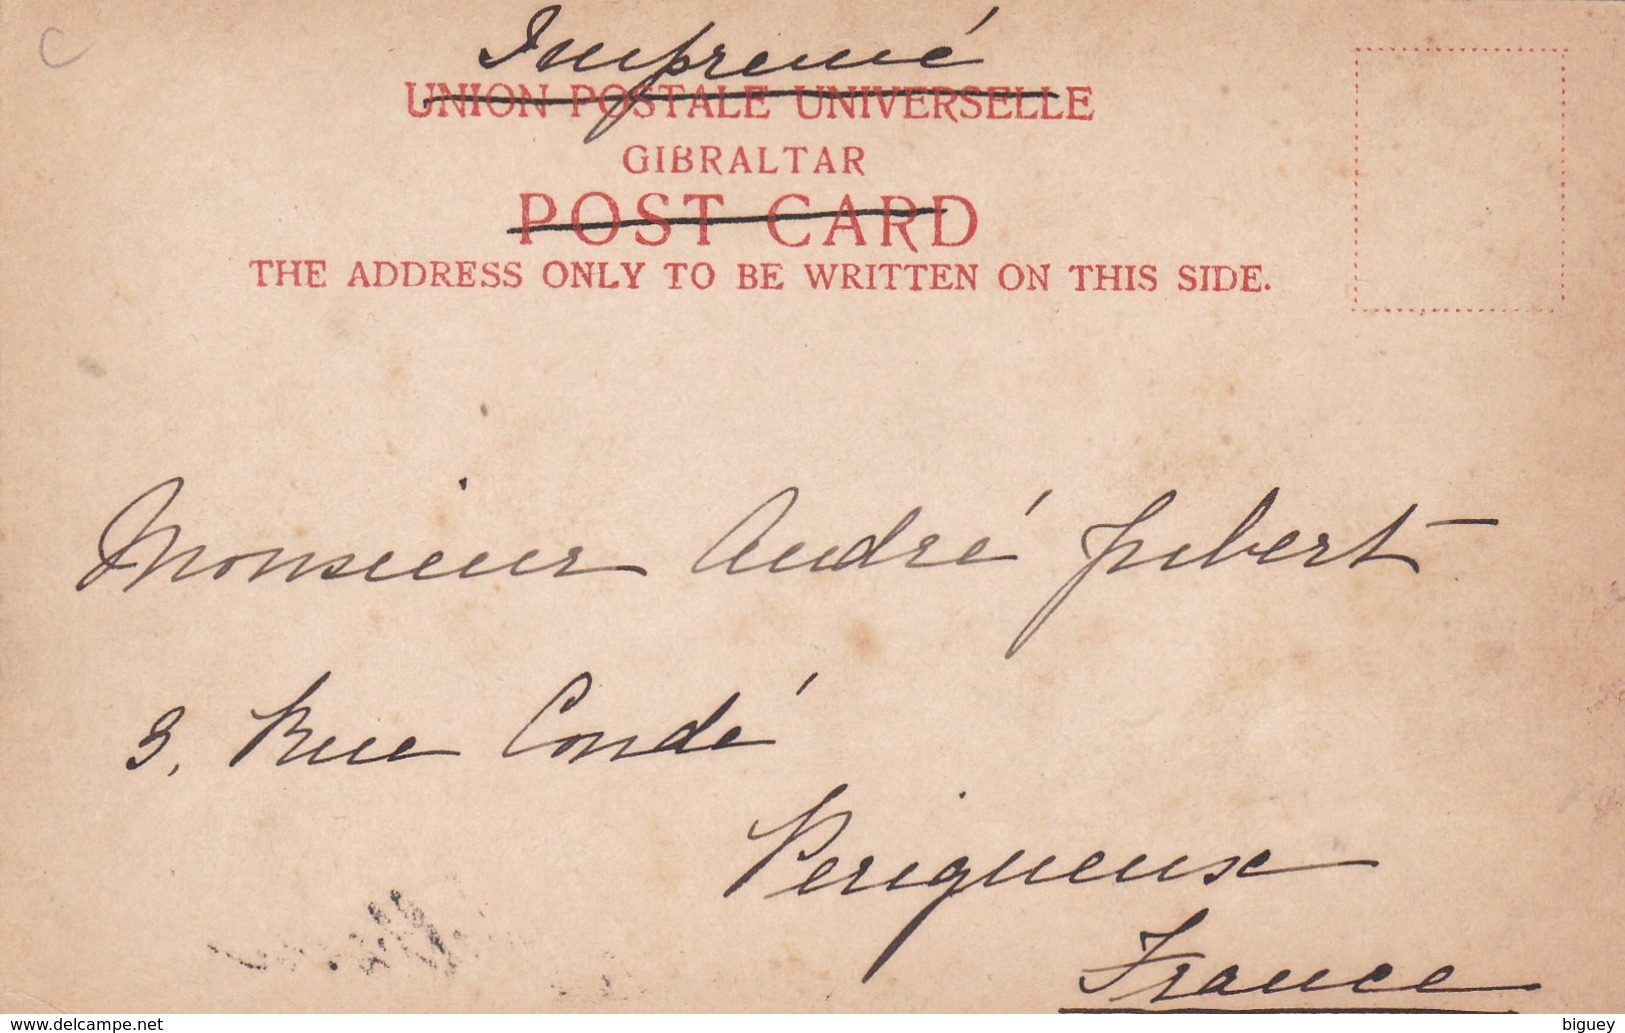 C
Imprimé
UNION POSTALE UNIVERSELLE
GIBRALTAR
POST CARD
THE ADDRESS ONLY TO BE WRITTEN ON THIS SIDE.
Monsieur André Jubert
3, Rue Condé
Perigueux
France
www.delcampe.net
biguey